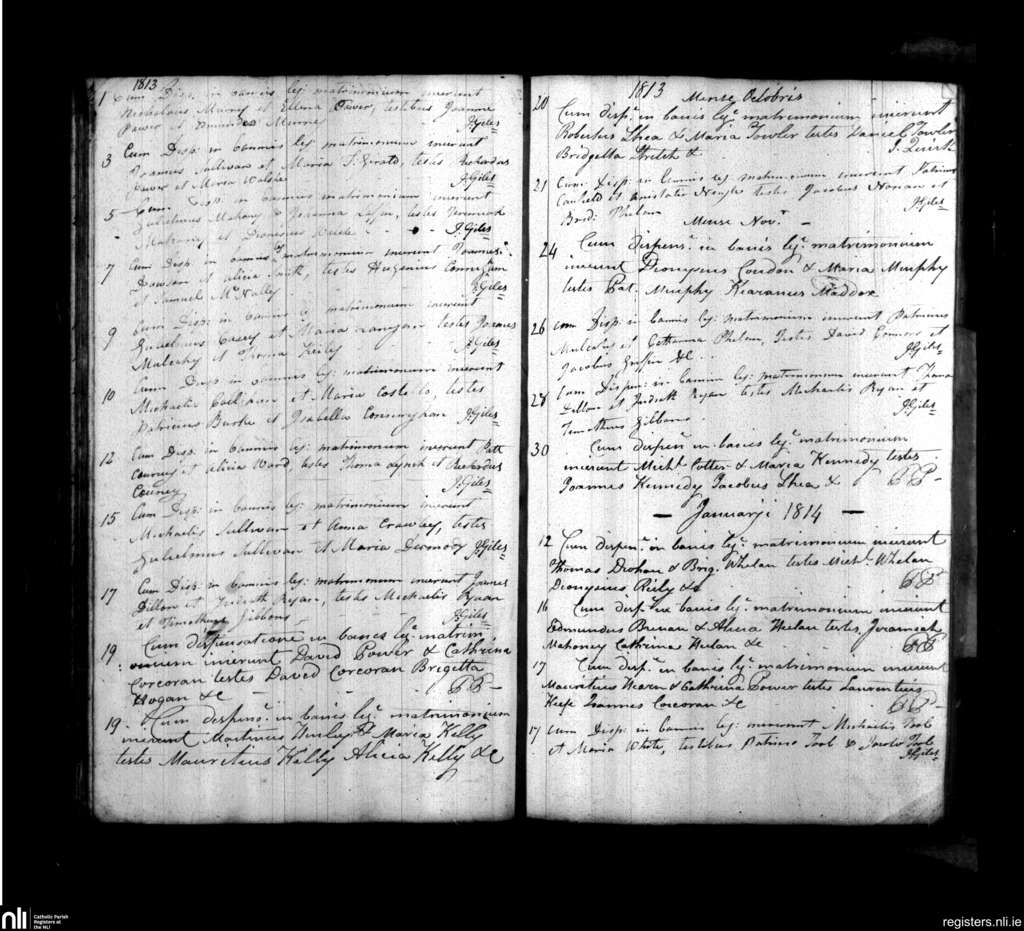 1813
1 Cum Disp: in bannis leg: matrimonium inierunt
Nicholaus et Ellena Power, testibus Joanne
Power et
J. Giles
3 Cum Disp: in bannis leg: matrimonium inierunt
Joannes Sulivan et Maria testes
Power et Maria Walshe
J. Giles
5 Cum Disp: in bannis matrimonium inierunt
Gulielmus Mahony & Joanna testes Jeremiah
Mahony et Dionisius
J. Giles
7 Cum Disp: in bannis lg: matrimonium inierunt Joannes
Dawson et Alicia Smith, testes Hugenius
et Samuel McNally
J. Giles
9 Cum Disp: in bannis lg: matrimonium inierunt
Gulielmus Casey et Maria Langan testes Joannes
Mulcahy et Kiely
J. Giles
10 Cum Disp in bannis leg: matrimonium inierunt
Michaelis et Maria Costello, testes
Patricius Burke et Isabella
J. Giles
12 Cum Disp. in bannis leg: matrimonium inierunt Patt
Courcy et Alicia Ward, testes Thoma Lynch et Richardus
Courcy
J. Giles
15 Cum Disp: in bannis leg: matrimonium inierunt
Michaelis Sullivan et Anna Crawley, testes
Gulielmus Sullivan et Maria Dermody J. Giles
17 Cum Disp: in bannis leg: matrimonium inierunt Joannes
Dillon et Judith Ryan, testes Michaelis Ryan
et Timotheus Gibbons
J. Giles
19 Cum dispensatione in bancis lg: matrim
onium inierunt David Power & Cathrina
Corcoran testes David Corcoran Brigetta
Hogan &c
P P
19 Cum dispens: in bancis lg: matrimonium
inierunt Martinus Hurly & Maria Kelly
testes Mauritius Kelly Alicia Kelly &c
1813
Mense Octobris
20 Cum disp: in bancis lg: matrimonium inierunt
Robertus Shea & Maria Fowler testes Daniel Fowler
Bridgetta Stretch &
J. Quirk
21 Cum Disp: in bannis leg matrimonium inierunt Patricius
Canfield et testes Jacobus Honan et
Brid: Phelan
J. Giles
Mense Novr
24 Cum dispens: in bancis lg: matrimonium
inierunt Dionysius Condon & Maria Murphy
testes Pat. Murphy Kiaranus Maddox
26 Cum Disp: in bannis leg: matrimonium inierunt Patricius
Mulcahy et Catharina Phelan, Testes David Connors et
Jacobus Griffin &c.
J. Giles
28 Cum Dispen: in bannis leg: matrimonium inierunt Thomas
Dillon et Judith Ryan testes Michaelis Ryan et
Timotheus Gibbons
J. Giles
30 Cum dispens: in bancis lg: matrimonium
inierunt Michl Cotter & Maria Kennedy testes
Joannes Kennedy Jacobus Shea & P P
Januarji 1814
12 Cum dispen: in bancis lg: matrimonium inierunt
Thomas Drohan & Brig. Whelan testes Michl Whelan
Dionysius Reily &c
P P
16 Cum disp: in bancis lg: matrimonium inierunt
Edmundus Brenan & Alicia Helan testes Jeremiah
Mahoney Cathrina Helan &c
P P
17 Cum disp: in bancis lg: matrimonium inierunt
Mauritius Hearn & Cathrina Power testes Laurentius
Keefe Joannes Corcoran &c
P P
17 Cum Disp: in bannis leg: inierunt Michaelis Tool
et Maria White, testibus Patricio Tool & Tool
J. Giles
nli Catholic Parish
Registers at
the NLI
registers.nli.ie